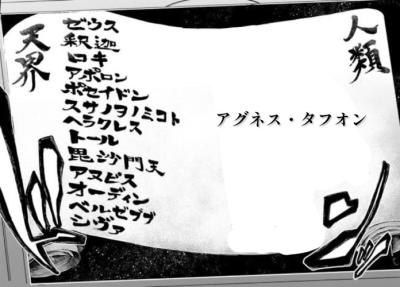 人類
アグネス・タフオン
天界
ゼウス
釈迦
ロキ
アポロン
ポセイドン
スサノヲノミコト
ヘラクレス
トール
毘沙門天
アヌビス
オーディン
ベルゼブブ
シヴァ